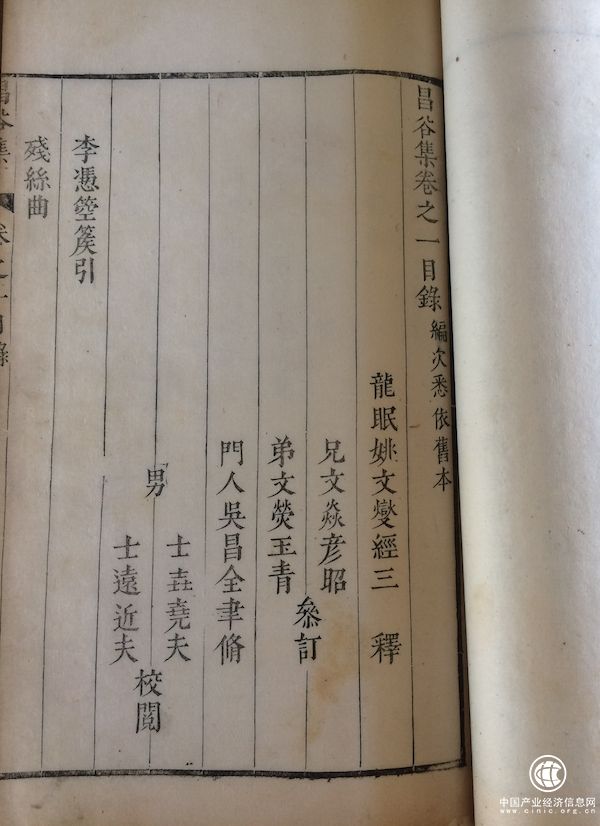 昌谷集卷之一目錄 編次悉依舊本
龍眠姚文燮經三 釋
兄文焱彥昭
弟文熒玉青
叅訂
門人吳昌全聿脩
男
士垚堯夫
士遠近夫
校閱
李憑箜篌引
殘絲曲
昌谷集 卷之一目錄
中国产业经济信息网
www.cinic.org.cn